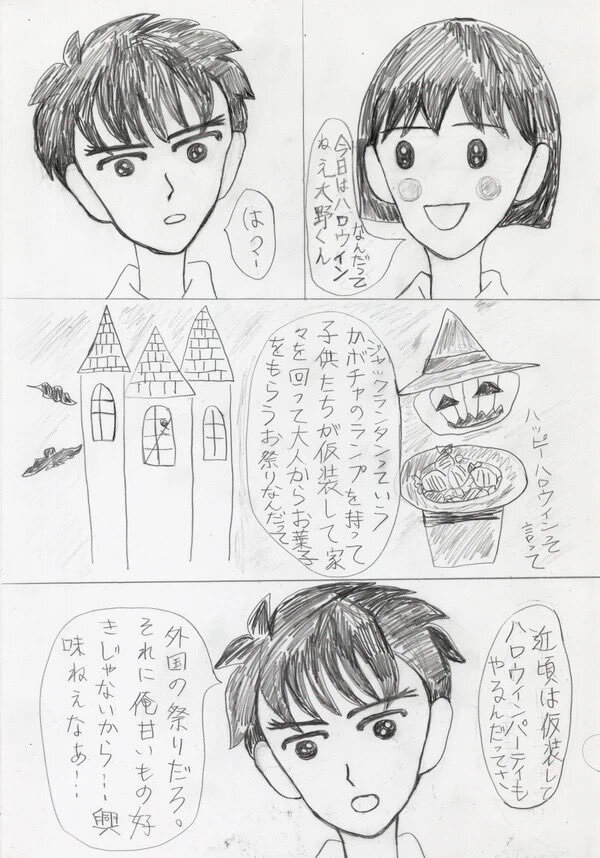 ねえ大野くん
今日はハロウィン
なんだって
はァー
ハッピーハロウィンって
言って
ジャックランタンっていう
かボチャのランプを持って
子供たちが仮装して家
々を回って大人からお菓子
をもらうお祭りなんだって
近頃は仮装して
ハロウィンパーティも
やるんだってさ
外国の祭りだろ。
それに俺甘いもの好
きじゃないから…興
味ねえなあ…